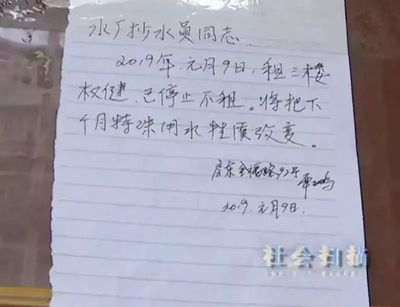 水厂抄水员同志
2019年.元月9日,租三楼
权健.已停止不租。将把下
个月特殊用水性质改变。
房东金福路92号
2019.元月9日.
社会扫描